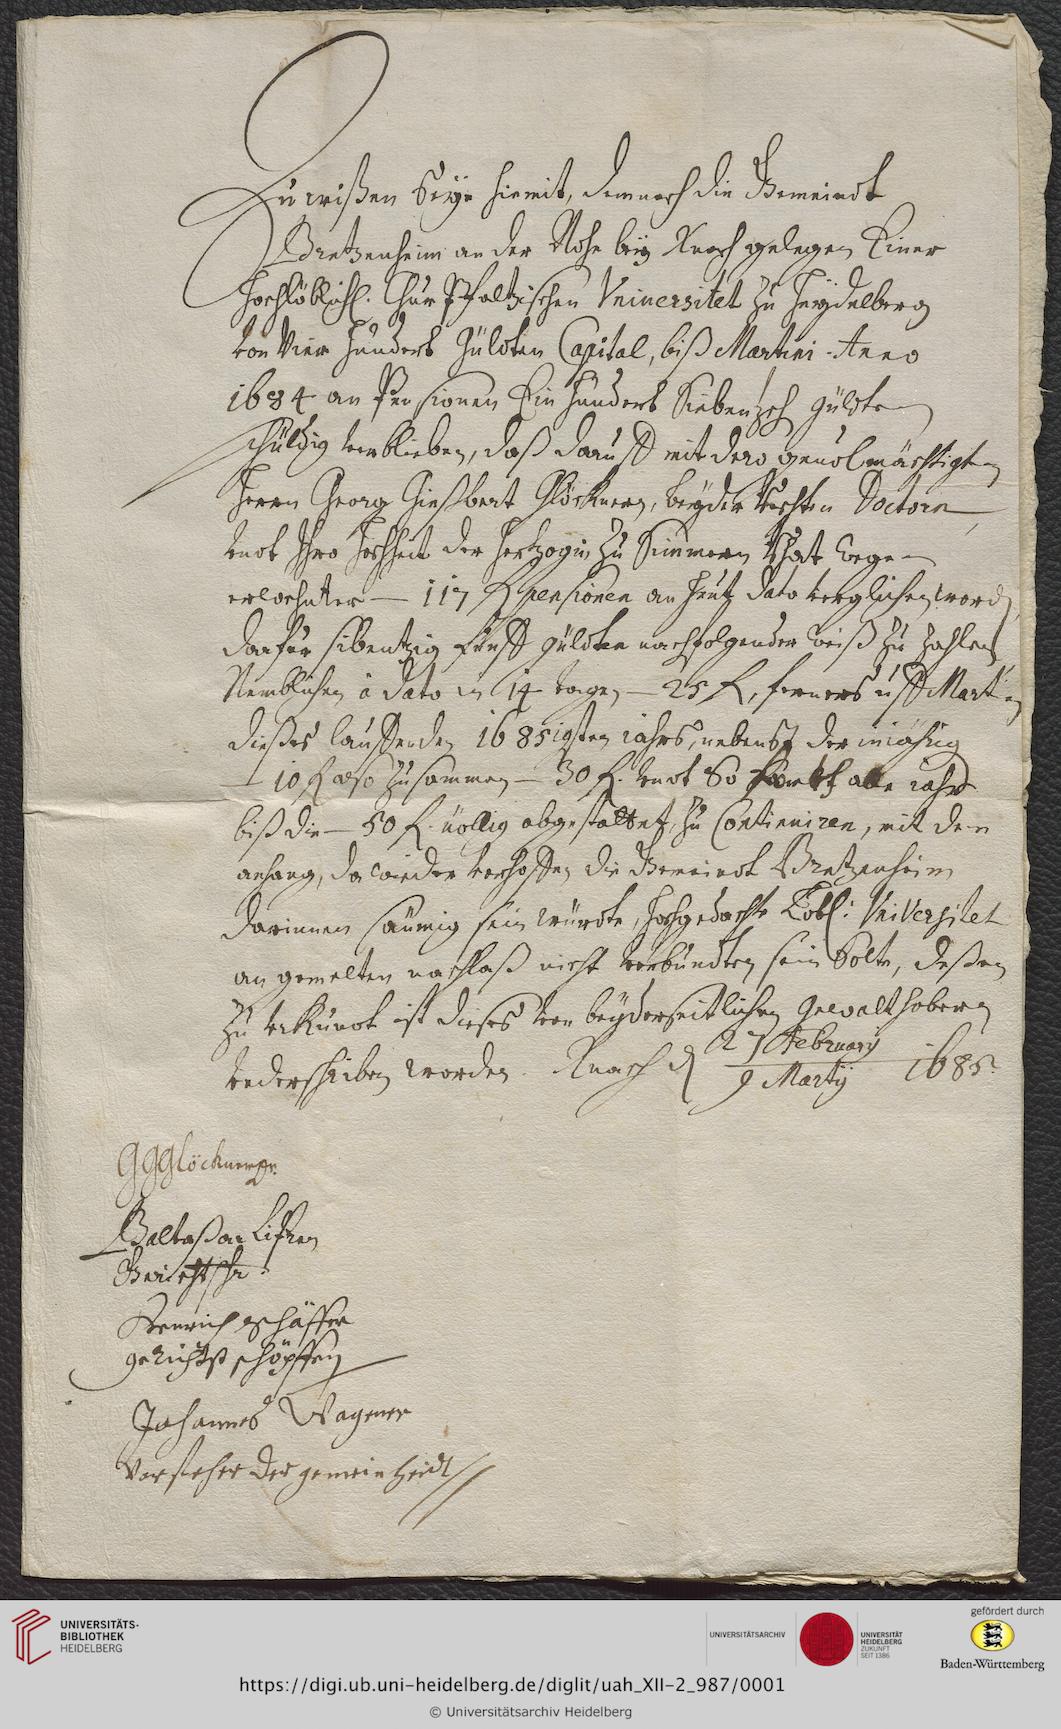 Zu wißen Seye hiemit, demnach die Gemeindt
Bretzenheim an der Nohe bey Creutznach gelegen Einer
Hochlöblichl. Chur Pfaltzischen Vniuersitet zu Heydelberg
von Vier Hundert Gülden Capital, biß Martini Anno
1684 an Pensionen Ein Hundert Siebenzeh Gülde
schuldig verblieben, daß darauff mit dero gevolmächtigten
Herrn Georg Gießbert Glöcknern, beyder Rechten Doctorn,
vndt Ihro Hochheit der Hertzogin zu Simmern Rhat wege
erwehnter — 117 fl pensionen an heut dato verglichen word
darfür sibentzig fünff gülden nachfolgender weiß zu zahlen
Nemblichen à dato in 14 tagen — 25 fl, ferners vff Martini
dießes lauffenden 1685igsten jahrs, nebenst der
— 10 fl also zusammen — 30 fl. vndt So alle jahr
biß die — 50 fl. völlig abgestattet, zu Continuiren, mit dem
anhang, da wieder verhoffen die Gemeindt Bretzenheim
darinnen säumig sein würde, Hochgedachte Löbl: VniVersitet
an gemelten nachlaß nicht verbundten sein Solte, deßen
zu vrkundt ist dießes von beyderseitlichen Gewalthabern
vnderschrieben worden. d 27 February
9 Martij 1685.
GGGlöckner
Baltaßar
Gerichtschr:
Henrich schäffer
gerichts schöpffen
Johannes Wagener
Vorsteher der gemein
UNIVERSITÄTS-
BIBLIOTHEK
HEIDELBERG
UNIVERSITÄTSARCHIV
UNIVERSITÄT
HEIDELBERG
ZUKUNFT
SEIT 1386
gefördert durch
Baden-Württemberg
https://digi.ub.uni-heidelberg.de/diglit/uah_XII-2_987/0001
© Universitätsarchiv Heidelberg